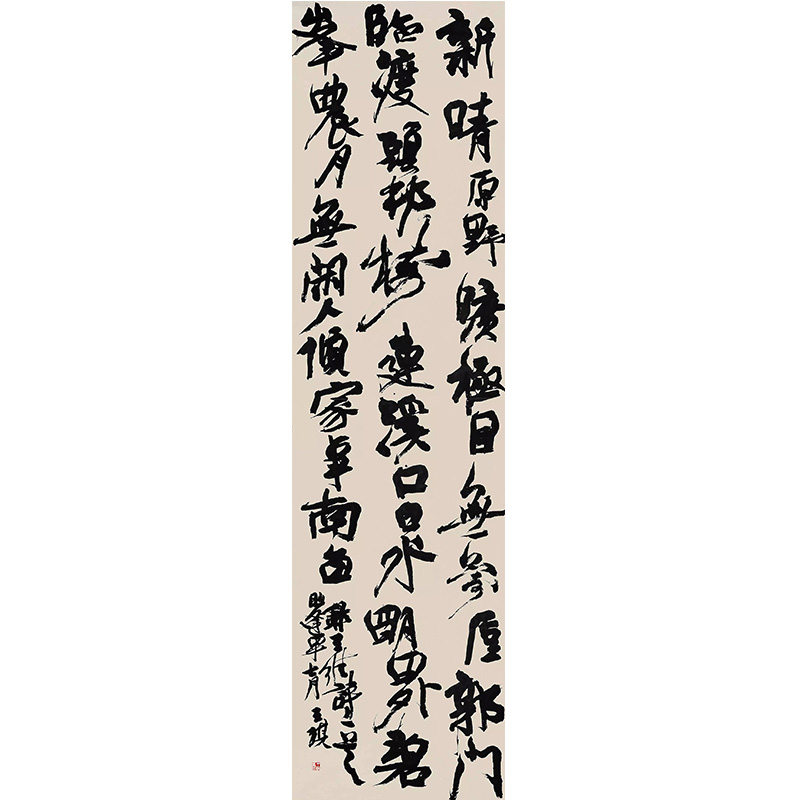 新晴原野曠極目無氛垢郭門
臨渡頭村樹連溪口白水明田外碧
峯農月無閑人傾家事南畝
錄王維詩一首
七月王琪